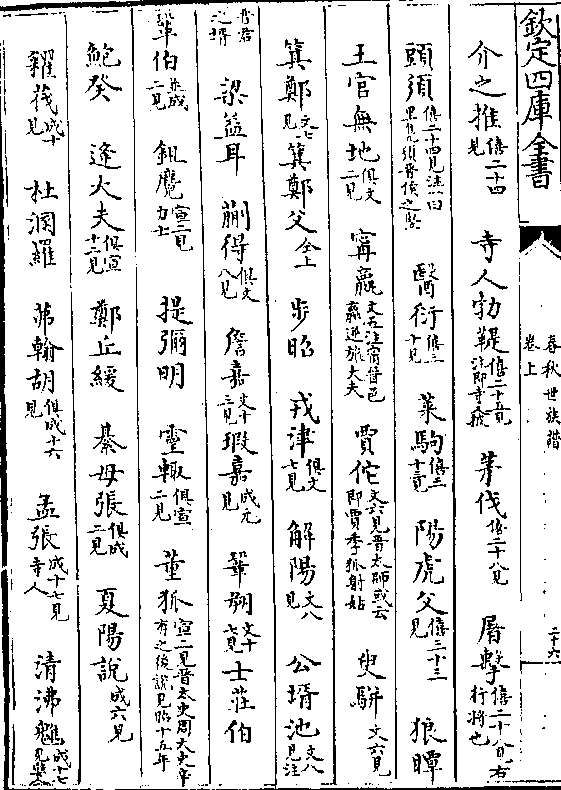 欽定四庫全書
春秋世族譜
卷上
二十六
介之推僖二十四見 寺人勃鞮僖二十五見注即寺人披 茅伐僖二十八見 屠擊僖二十八見右行將也
頭須僖二十四見注一曰里鳧須晉侯之豎 醫衍僖三十見 萊駒僖三十三見 陽虎父僖三十三見 狼瞫
王官無地俱文二見 甯嬴文五注甯晉邑嬴逆旅大夫 賈佗文六見晉太師或云即賈季狐射姑 史駢文六見
箕鄭文七見 箕鄭父仝上 步昭 戎津俱文七見 解陽文八見 公壻池文八見注
晉君之壻 梁益耳 蒯得俱文八見 詹嘉文十三見 瑕嘉成元見 鞏朔文十七見 士莊伯
鞏伯並成二見 鉏麑宣二見力士 提彌明 靈輒俱宣二見 董狐宣二見晉太史周太史辛有之後說見昭十五年
鮑癸 逢大夫俱宣十二見 鄭丘緩 綦毋張俱成二見 夏陽說成六見
糴茷成十見 杜溷羅 茀翰胡俱成十六見 孟張成十七見寺人 清沸魋成十七見